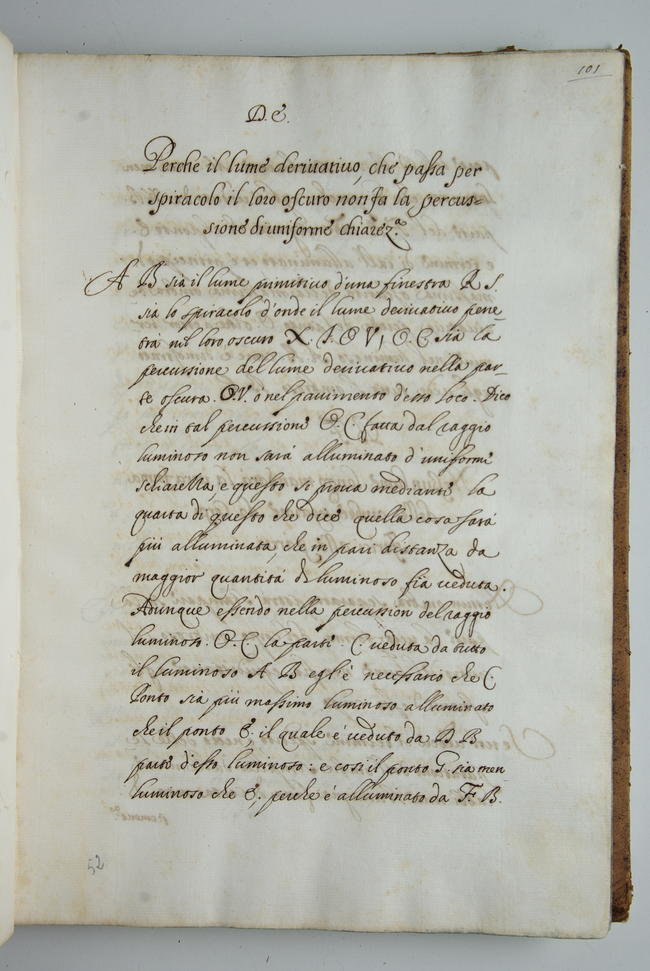 101
D. e.
Perche il lume deriuatiuo, che passa per
spiracolo il loro oscuro non fa la percus=
sione di uniforme chiarez.ª
A B sia il lume primitiuo d'una finestra R S.
sia lo spiracolo d'onde il lume deriuatiuo pene=
tra nel loro oscuro X. I. O V, O. C sia la
percussione del lume deriuatiuo nella par=
te oscura. O.V. ó nel pauimento d'esso loco. Dico
che in tal percussione O. C. fatta dal raggio
luminoso non sará alluminato d'uniforme
schiarella, e questo si proua mediante la
quarta di questo che dice quella cosa sará
piú alluminata, che in pari distanza da
maggior quantitá di luminoso fia ueduta.
Adunque essendo nella percussion del raggio
luminoso. O. C la parte C. ueduta da tutto
il luminoso A B egl'é necessario che C.
Ponto sia piú massimo luminoso alluminato
che il ponto &. il quale é ueduto da D B
parte d'esso luminoso: e cosi il ponto G. sia men
luminoso che &. perche é alluminato da F. B.
52